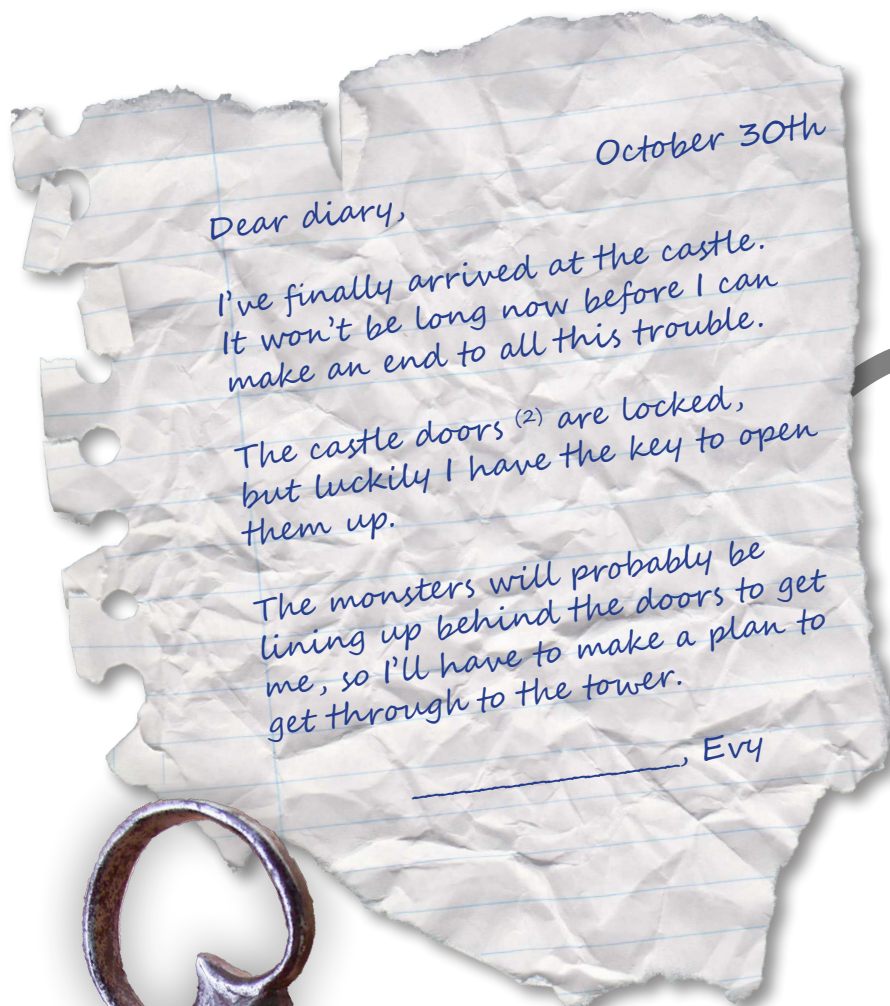 October 30th
Dear diary,
I've finally arrived at the castle.
It won't be long now before I can
make an end to all this trouble.
The castle doors (2) are locked,
but luckily I have the key to open
them up.
The monsters will probably be
lining up behind the doors to get
me, so I'll have to make a plan to
get through to the tower.
____________________, Evy